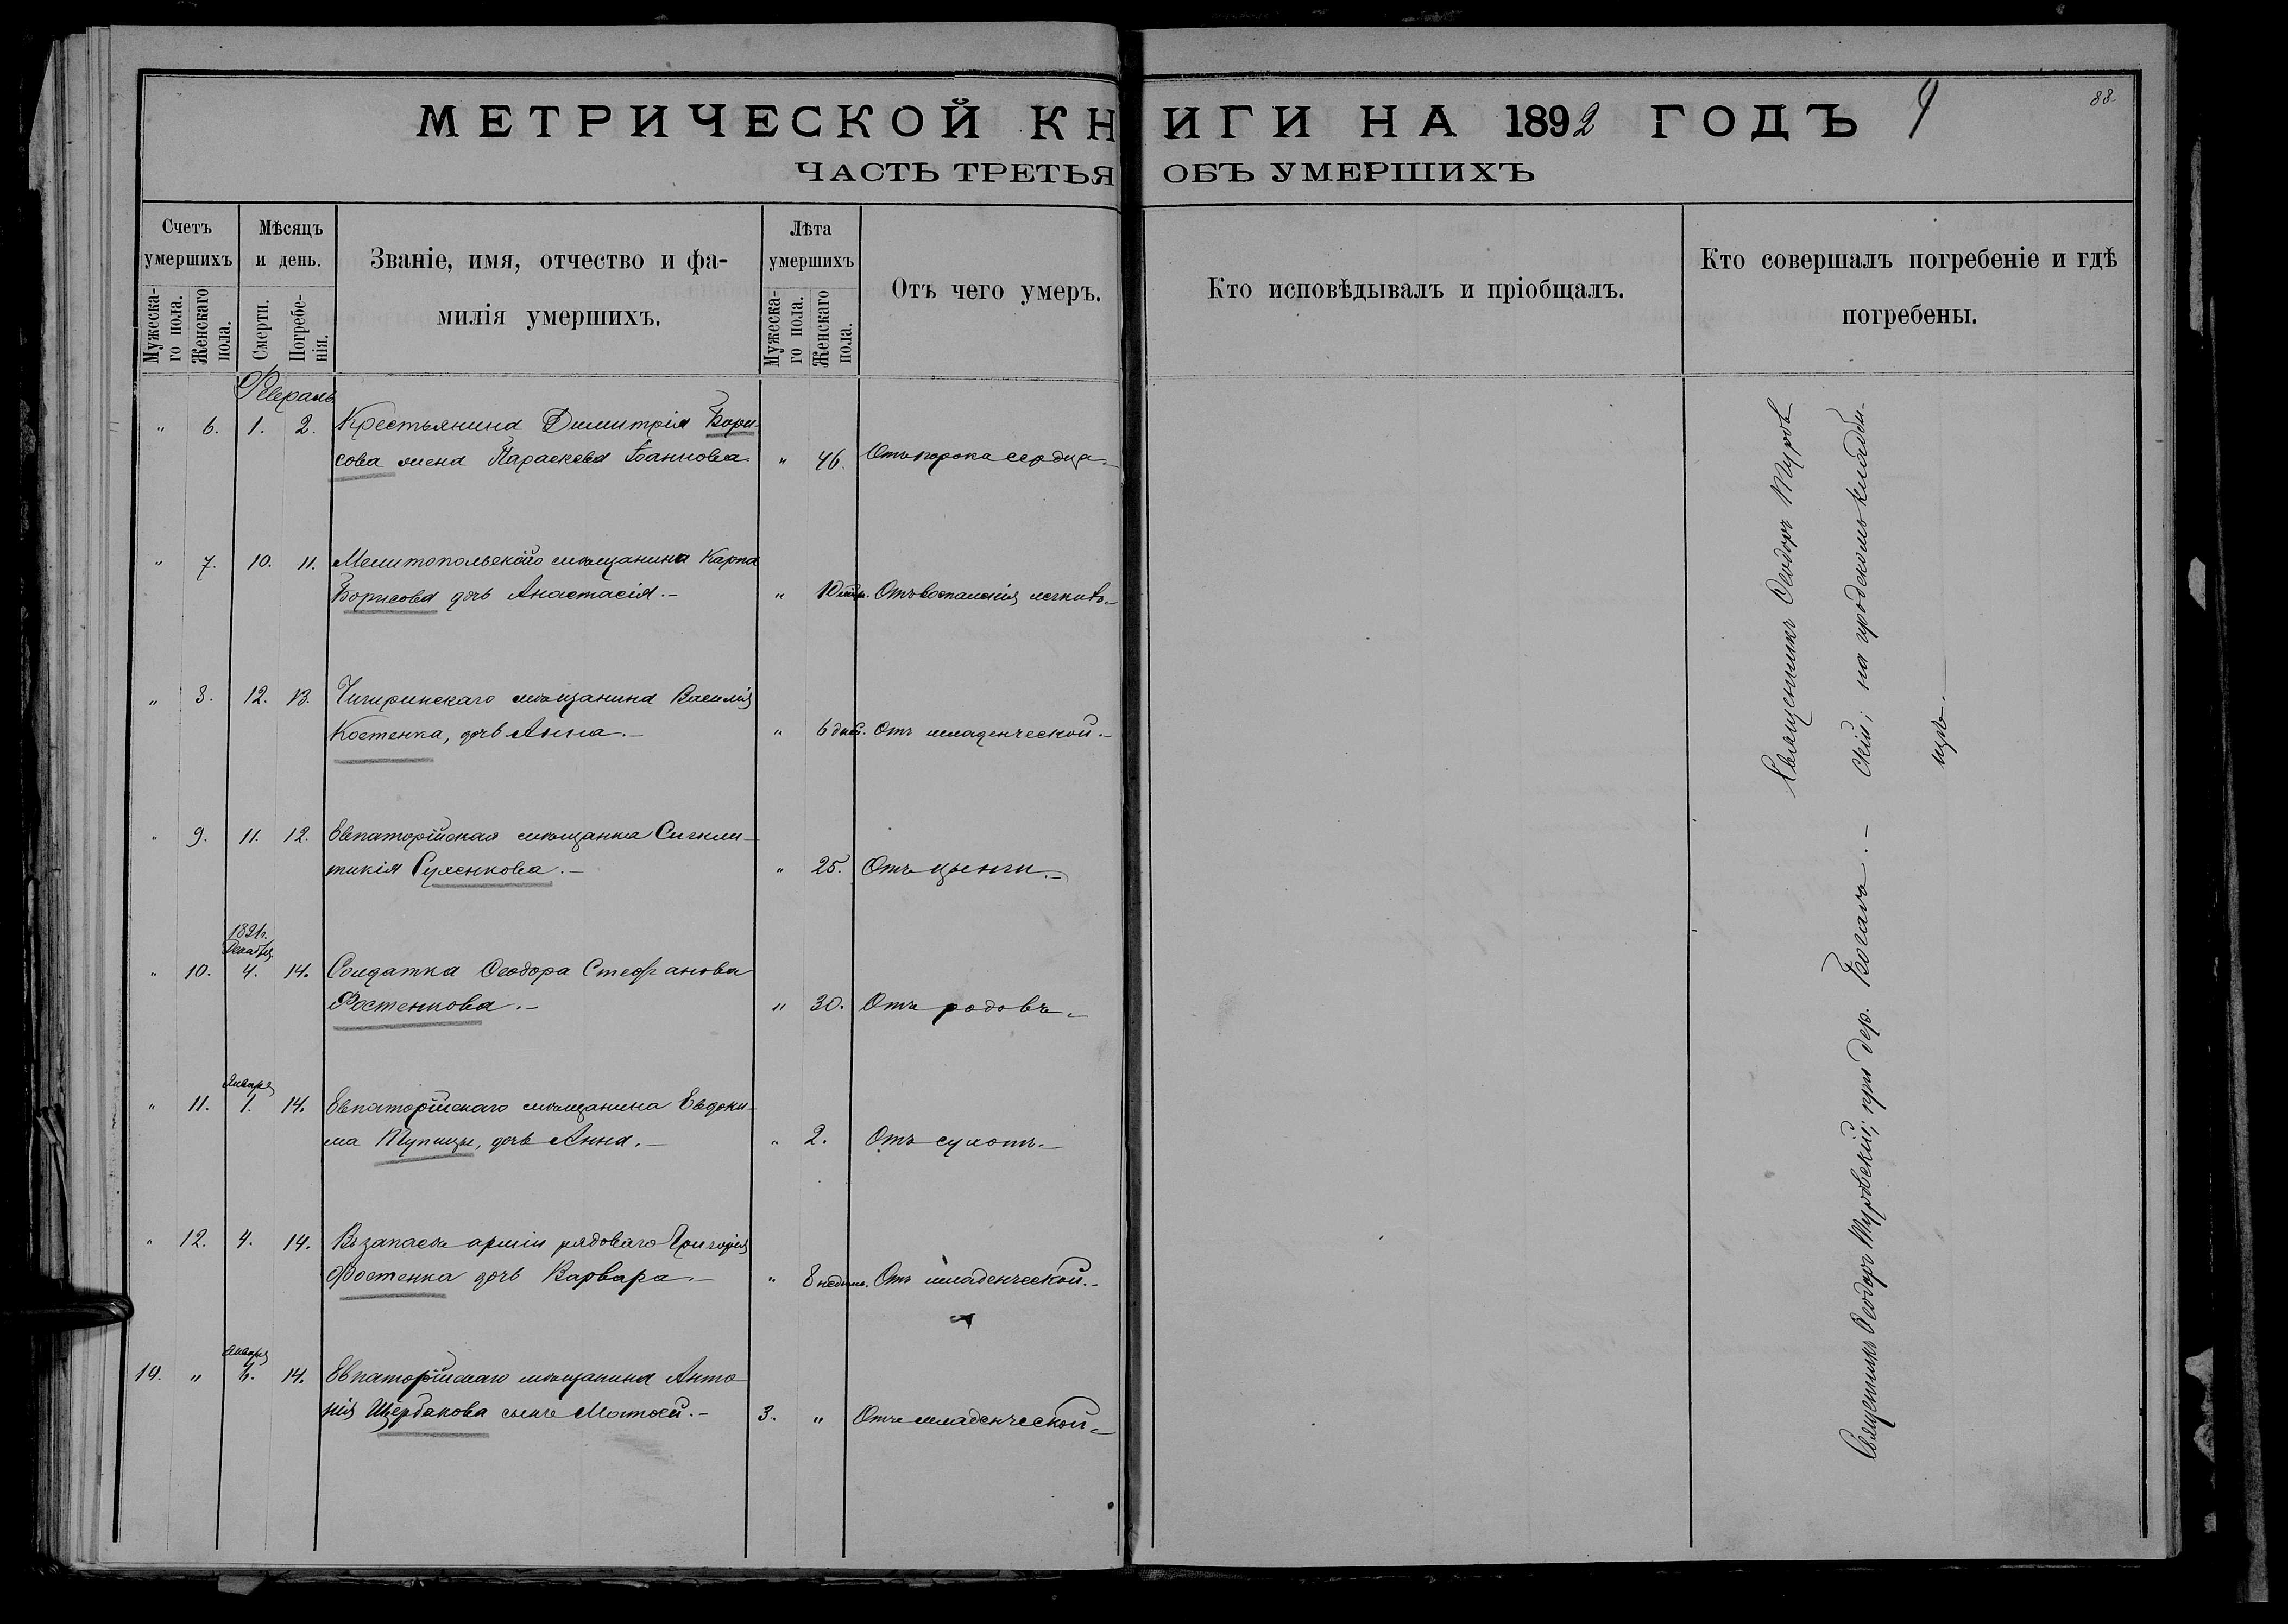 МЕТРИЧЕСКОЙ КНИГИ НА 1892 ГОДЪ
88.
ЧАСТЬ ТРЕТЬЯ ОБЪ УМЕРШИХЪ
Счетъ умершихъ
Мужеска-го пола.
Женскаго пола.
Мѣсяцъ и день.
Смерти.
Погребе-нія.
Званіе, имя, отчество и фа-
милія умершихъ.
Лѣта умершихъ
Мужеска-го пола.
Женскаго пола.
Отъ чего умеръ.
Кто исповѣдывалъ и пріобщалъ.
Кто совершалъ погребеніе и гдѣ
погребены.
Февраль
" 6. 1. 2. Крестьянина Димитрія Бори-
сова жена Параскева Іоаннова " 46. Отъ порока сердца.
" 7. 10. 11. Мелитопольскаго мѣщанина Карпа
Борисова дочь Анастасія.- " Отъ воспаленія легкихъ.
" 8. 12. 13. Чигиринскаго мѣщанина Василія
Костенка, дочь Анна.- " 6 дней. Отъ младенческой.-
" 9. 11. 12. Евпаторійская мѣщанка Сигкли-
тикія " 25. Отъ цынги.-
1891г.
Декабря
" 10. 4. 14. Солдатка Ѳеодора Стефанова
Фостенкова.- " 30. Отъ родовъ.
Января
" 11. 1. 14. Евпаторійскаго мѣщанина Евдоки-
ма Тупицы, дочь Анна.- " 2. Отъ сухотъ.-
" 12. 4. 14. Въ запасѣ арміи рядоваго Григорія
Фостенка дочь Варвара.- " 8 недѣль. Отъ младенческой.-
Января
19. " 6. 14. Евпаторійскаго мѣщанина Анто-
нія Щербакова сынъ Матѳей.- 3. " Отъ младенческой.
Священникъ Ѳеодоръ Туров
скій; на городскомъ кладби-
щѣ.
Священникъ Ѳеодоръ Туровскій; при дер. Богалъ.-